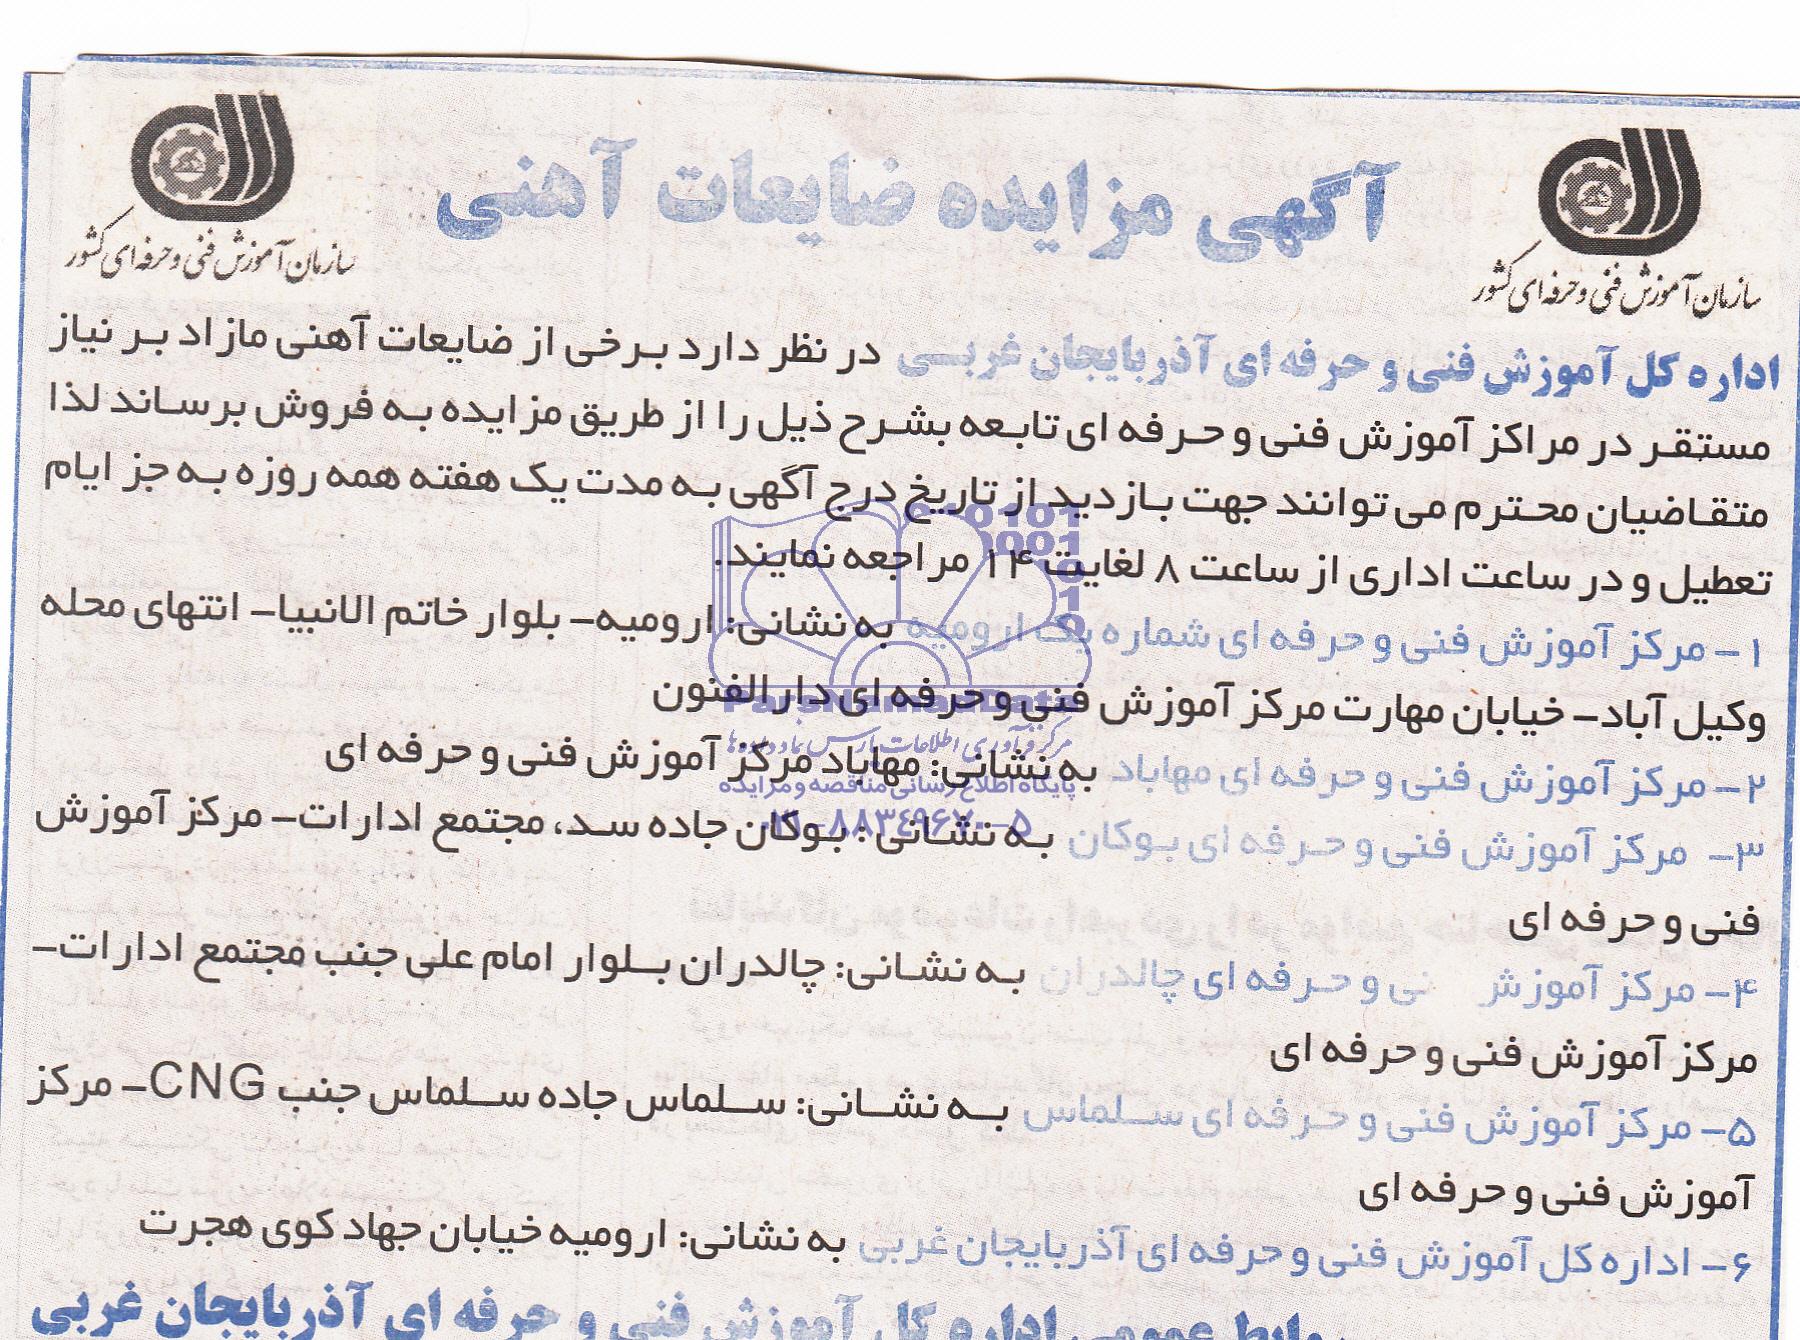 آگهی مزایده ضایعات آهنی
سازمان آموزش فنی و حرفه ای کشور
سازمان آموزش فنی و حرفه ای کشور
اداره کل آموزش فنی و حرفه ای آذربایجان غربی در نظر دارد برخی از ضایعات آهنی مازاد بر نیاز
مستقر در مراکز آموزش فنی و حرفه ای تابعه بشرح ذیل را از طریق مزایده به فروش برساند لذا
متقاضیان محترم می توانند جهت بازدید از تاریخ درج آگهی به مدت یک هفته همه روزه به جز ایام
تعطیل و در ساعت اداری از ساعت ۸ لغایت ۱۴ مراجعه نمایند.
۱- مرکز آموزش فنی و حرفه ای شماره یک ارومیه به نشانی: ارومیه- بلوار خاتم الانبیا- انتهای محله
وکیل آباد- خیابان مهارت مرکز آموزش فنی و حرفه ای دارالفنون
۲- مرکز آموزش فنی و حرفه ای مهاباد به نشانی: مهاباد مرکز آموزش فنی و حرفه ای
۳- مرکز آموزش فنی و حرفه ای بوکان به نشانی: بوکان جاده سد، مجتمع ادارات- مرکز آموزش
فنی و حرفه ای
۴- مرکز آموزش نی و حرفه ای چالدران به نشانی: چالدران بلوار امام علی جنب مجتمع ادارات-
مرکز آموزش فنی و حرفه ای
۵- مرکز آموزش فنی و حرفه ای سلماس به نشانی: سلماس جاده سلماس جنب CNG- مرکز
آموزش فنی و حرفه ای
۶- اداره کل آموزش فنی و حرفه ای آذربایجان غربی به نشانی: ارومیه خیابان جهاد کوی هجرت
روابط عمومی اداره کل آموزش فنی و حرفه ای آذربایجان غربی
ParsNamadData
مرکز فرآوری اطلاعات پارس نماد داده ها
پایگاه اطلاع رسانی مناقصه و مزایده
۰۲۱-۸۸۳۴۹۶۷۰-۵